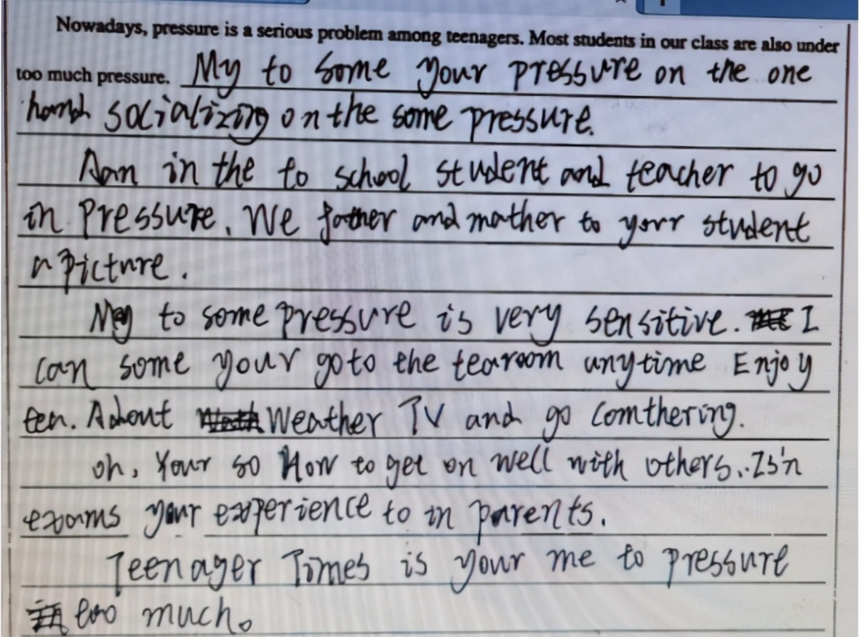 Nowadays, pressure is a serious problem among teenagers. Most students in our class are also under
too much pressure. My to some your pressure on the one
hand socializing on the some pressure.
in the to school student and teacher to go
in pressure. We father and mather to your student
a picture.
May to some pressure is very sensitive. I
can some your go to the tearoom anytime Enjoy
ten. About Weather TV and go
oh, Your so How to get on well with others. Is'n
exams your experience to in parents.
Teenager Times is your me to pressure
too much.